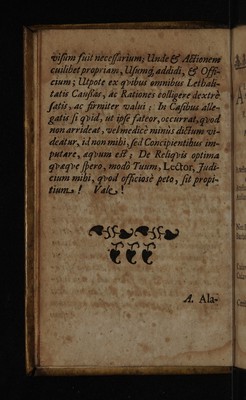 visum fuit necessarium; Unde & Actionem
cuilibet propriam, Usumq; addidi, & Offi-
cium; Utpote ex qvibus omnibus Lethali-
tatis Caussas, ac Rationes colligere dextrè
satis, ac firmiter valui; In Casibus alle-
gatis si qvid, ut ipse fateor, occurrat, qvod
non arrideat, vel medicè minùs dictum vi-
deatur, id non mihi, sed Concipientibus im-
putare, æqvum est; De Reliqvis optima
qvæqve spero, modò Tuum, Lector, Judi-
cium mihi, qvod officiosè peto, sit propi-
tium! Vale!
A. Ala-